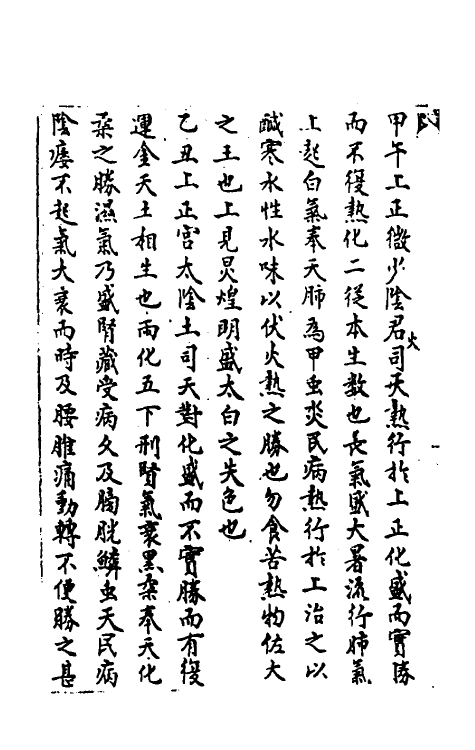 甲午上正徵少陰君火司天熱行於上正化盛而實勝
而不復熱化二從本生數也長氣盛大暑流行肺氣
上起白氣奉天肺爲甲虫災民病熱行於上治之以
醎寒水性水味以伏火熱之勝也勿食苦熱物佐大
之王也上見炅煌明盛太白之失色也
乙丑上正宮太陰土司天對化盛而不實勝而有復
運金天土相生也雨化五下刑腎氣衰黑氣奉天化
桼之勝濕氣乃盛腎藏受病攵及膓胱鱗虫天民病
陰痿不起氣大衰而時及腰脽痛動轉不便勝之甚